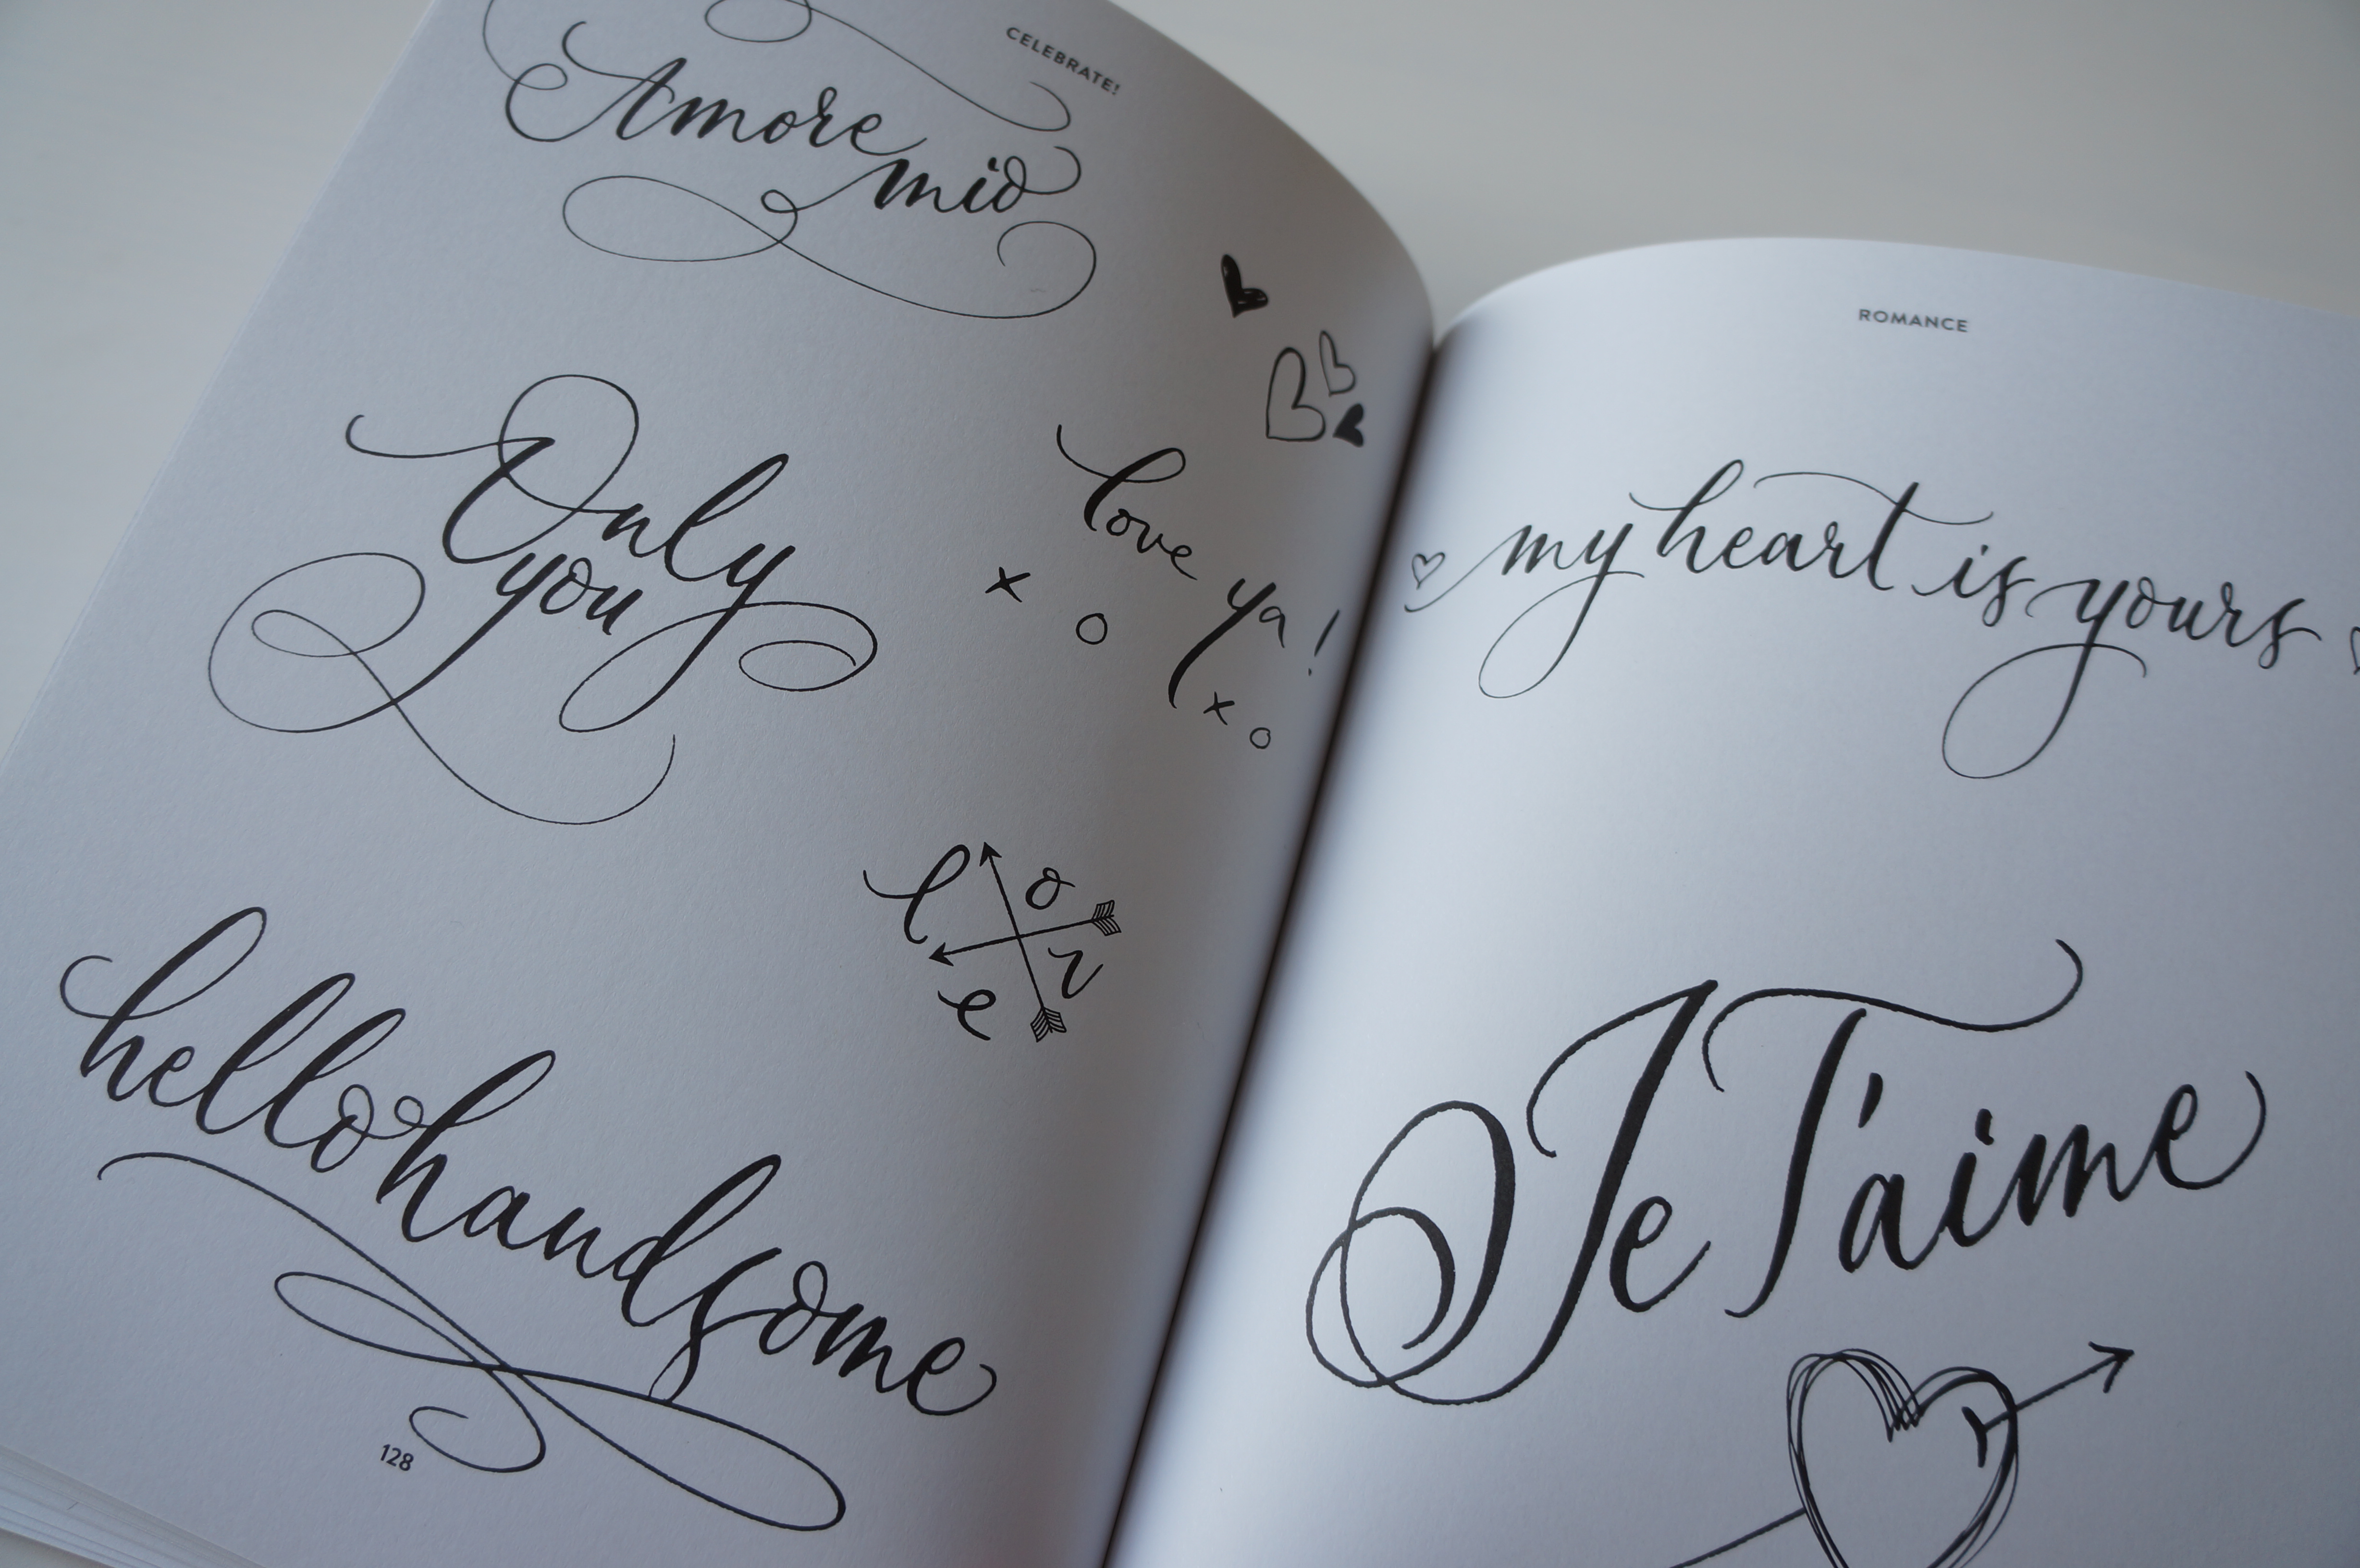 CELEBRATE!
Amore
mio
Only
you
love
ya!
x o
x o
l o
e v
hello handsome
128
ROMANCE
my heart is yours
Je T'aime